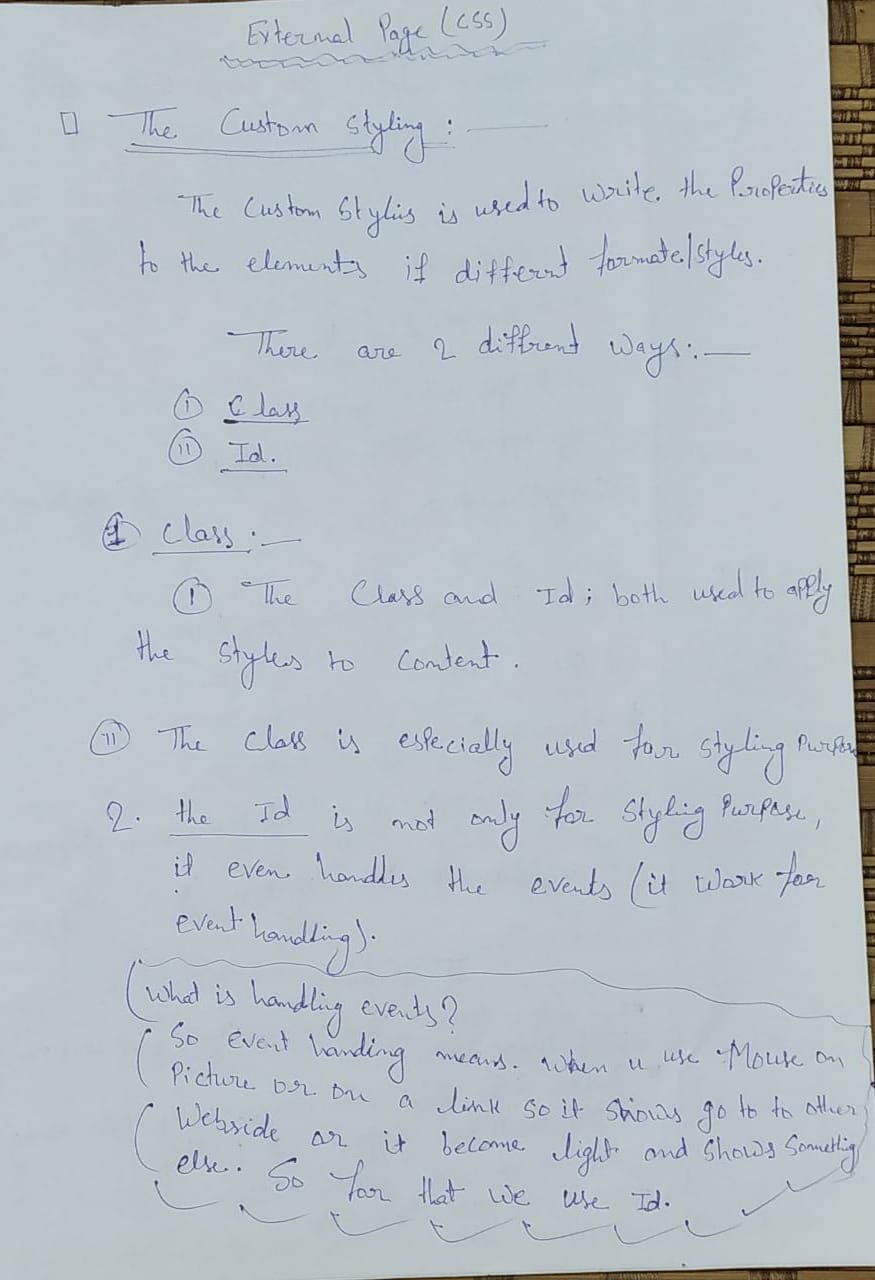 External Page (CSS)
The Custom Styling :
The Custom Stylis is used to write. the Properties
to the elements if differnt formate/styles.
There are 2 diffrent ways:—
(i) Class
(ii) Id.
(1) Class :—
(i) The Class and Id; both used to apply
the styles to Content.
(ii) The Class is especially used for styling Purpose
2. the Id is not only for Styling Purpose,
it even handles the events (it work for
event handling).
(What is handling events?
So event handing means. when u use Mouse on
Picture or on a link so it shows go to to other
Webside or it become light and shows Something
else. So for that we use Id.